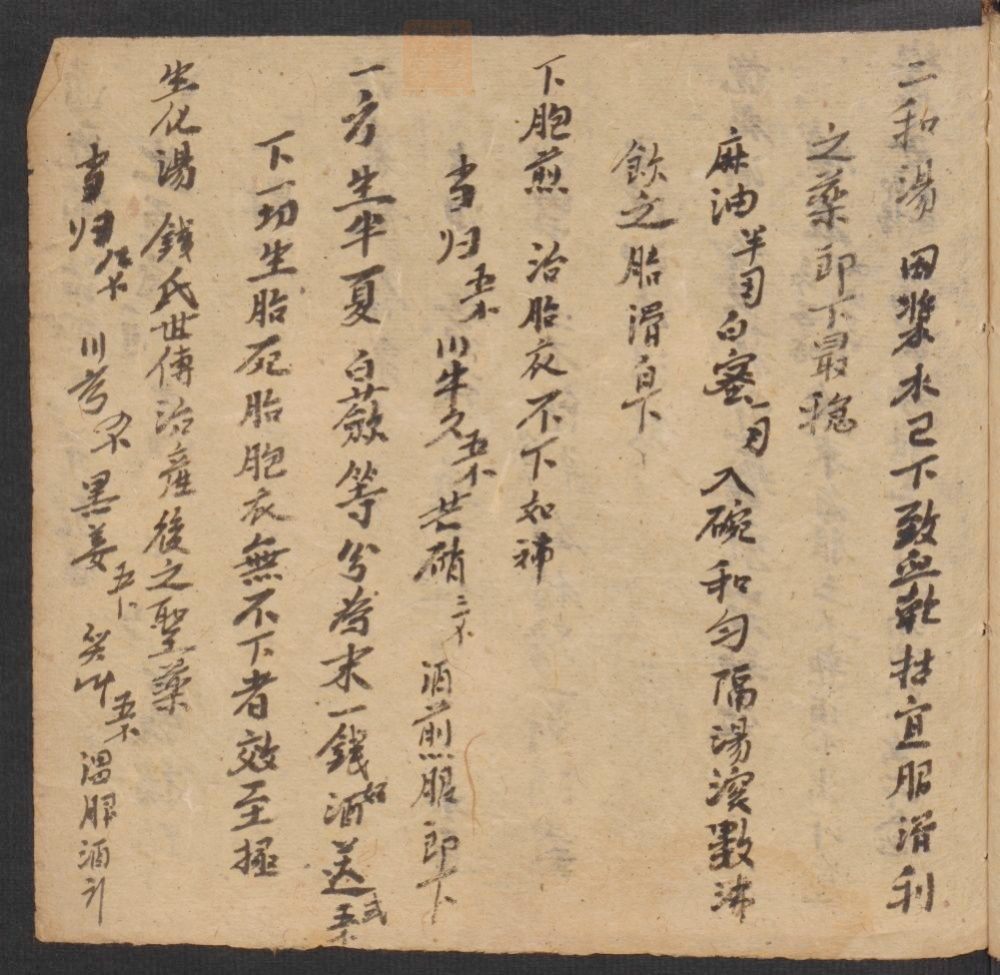 二和湯　因漿水已下致血乾枯宜服滑利
之藥即下最穩
麻油半　白蜜一　入碗和勻隔湯滾數沸
飲之胎滑自下
下胞煎　治胎衣不下如神
当归　川牛夕　芒硝　酒煎服即下
一方生半夏白蘞等分為末一錢酒送
下一切生胎死胎胞衣無不下者效至極
生化湯　錢氏世傳治產後之聖藥
当归　川芎　黑姜　温服酒引